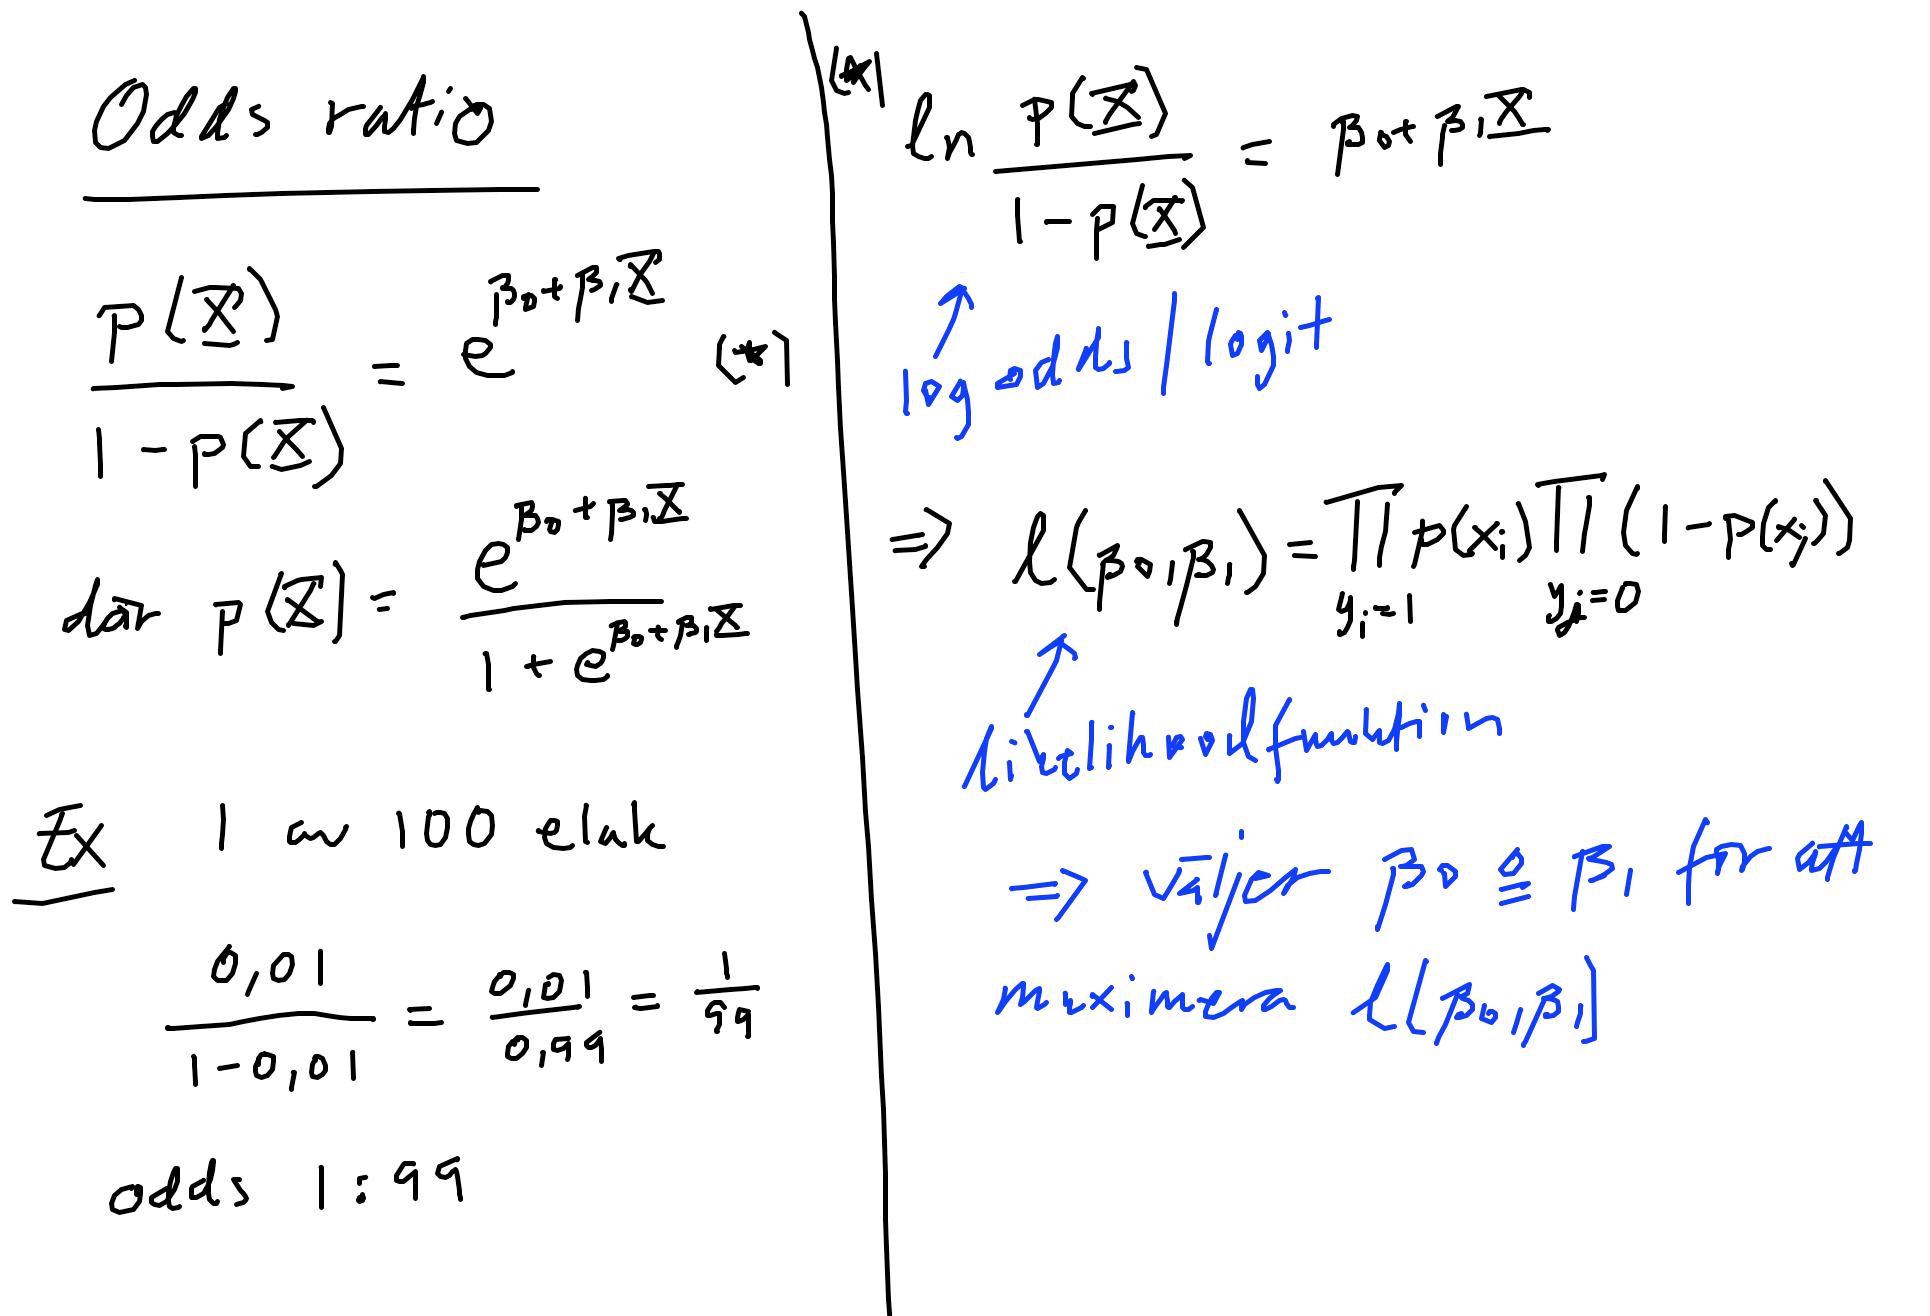 Odds ratio
p(X) / (1 - p(X)) = e^(β0 + β1X) (*)
där p(X) = e^(β0 + β1X) / (1 + e^(β0 + β1X))
Ex 1 av 100 elak
0,01 / (1-0,01) = 0,01 / 0,99 = 1/99
odds 1:99
(*) ln p(X) / (1 - p(X)) = β0 + β1X
log odds / logit
⇒ l(β0, β1) = ∏_{yi=1} p(xi) ∏_{yj=0} (1 - p(xj))
likelihoodfunktion
⇒ väljer β0 o β1 för att
maximera l(β0, β1)